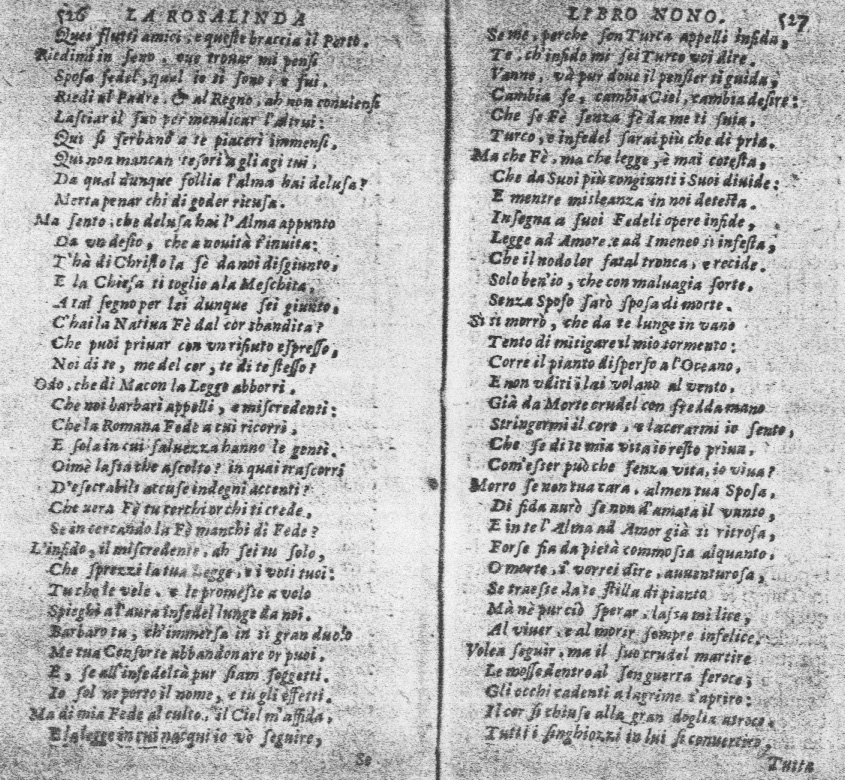 526 LA ROSALINDA
Quei flutti amici, e queste braccia il Porto.
Riedimi in seno, oue trouar mi pensi
Sposa fedel, qual io ti sono, e fui.
Riedi al Padre, & al Regno, ah non conuiensi
Lasciar il suo per mendicar l'altrui:
Qui si serbano a te piaceri immensi,
Qui non mancan tesori a gli agi tui.
Da qual dunque follia l'alma hai delusa?
Merta penar chi di goder ricusa.
Ma sento, che delusa hai l'Alma appunto
Da vn desio, che a nouità t'inuita:
T'hà di Christo la fè da noi disgiunto,
E la Chiesa ti toglie a la Meschita,
A tal segno per lei dunque sei giunto,
C'hai la Natiua Fè dal cor sbandita?
Che puoi priuar con vn rifiuto espresso,
Noi di te, me del cor, te di te stesso?
Odo, che di Macon la Legge abborri.
Che noi barbari appelli, e miscredenti:
Che la Romana Fede a cui ricorri,
E sola in cui saluezza hanno le genti.
Oimè lassa che ascolto? in quai trascorri
D'esecrabili accuse indegni accenti?
Che vera Fè tu cerchi or chi ti crede,
Se in cercando la Fè manchi di Fede?
L'infido, il miscredente, ah sei tu solo,
Che sprezzi la tua Legge, e i voti tuoi:
Tu che le vele, e le promesse a volo
Spieghi a l'aura infedel lunge da noi.
Barbaro tu, ch'immersa in sì gran duolo
Me tua Consorte abbandonare or puoi.
E, se all'infedeltà pur siam soggetti.
Io sol ne porto il nome, e tu gli effetti.
Ma di mia Fede al culto, il Ciel m'affida,
E la legge in cui nacqui io vò seguire,
Se
LIBRO NONO. 527
Se me, perche son Turca appelli infida,
Te, ch'infido mi sei Turco voi dire.
Vanne, và pur doue il pensier ti guida,
Cambia fe, cambia Ciel, cambia desire:
Che se Fè senza fè da me ti suia,
Turco, e infedel sarai più che di pria.
Ma che Fè, ma che legge, è mai cotesta,
Che da Suoi più congiunti i Suoi diuide:
E mentre misleanza in noi detesta.
Insegna a suoi Fedeli opere infide,
Legge ad Amore, e ad Imeneo si infesta,
Che il nodo lor fatal tronca, e recide.
Solo ben'io, che con maluagia sorte,
Senza Sposo sarò sposa di morte.
Sì sì morrò, che da te lunge in vano
Tento di mitigare il mio tormento:
Corre il pianto disperso a l'Oceano,
E non vditi i lai volano al vento,
Già da Morte crudel con fredda mano
Stringermi il core, e lacerarmi io sento,
Che se di te mia vita io resto priua,
Com'esser può che senza vita, io viua?
Morro se non tua cara, almen tua Sposa,
Di fida aurò se non d'amata il vanto,
E in te l'Alma ad Amor già sì ritrosa,
Forse fia da pietà commossa alquanto.
O morte, i' vorrei dire, auuenturosa,
Se traesse da te stilla di pianto
Mà nè pur ciò sperar, lassa mi lice,
Al viuer, e al morir sempre infelice.
Volea seguir, ma il suo crudel martire
Le mosse dentro al sen guerra feroce;
Gli occhi cadenti a lagrime s'aprire:
Il cor si chiuse alla gran doglia atroce.
Tutti i singhiozzi in lui si conuertiro,
Tutta